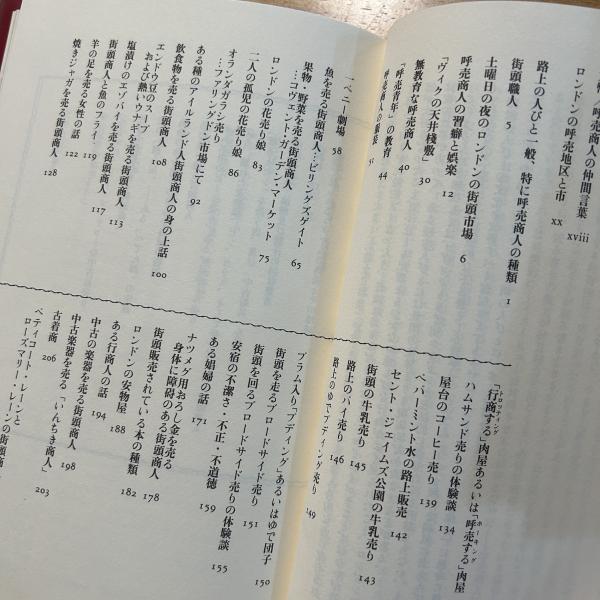 呼売商人の仲間言葉 xviii
ロンドンの呼売地区と市 xx
路上の人びと一般、特に呼売商人の種類 1
街頭職人 5
土曜日の夜のロンドンの街頭市場 6
呼売商人の習癖と娯楽 12
「ヴィクの天井桟敷」 30
無教育な呼売商人 40
「呼売青年」の教育 44
呼売商人の服装 51
一ペニー劇場 58
魚を売る街頭商人…ビリングズゲイト
果物・野菜を売る街頭商人 65
…コヴェント・ガーデン・マーケット 75
ロンドンの花売り娘 83
二人の孤児の花売り娘 86
オランダガラシ売り
…ファリングドン市場にて 92
ある種のアイルランド人街頭商人の身の上話 100
飲食物を売る街頭商人 108
エンドウ豆のスープ
および熱いウナギを売る街頭商人 113
塩漬けのエゾバイを売る街頭商人 117
街頭商人と魚のフライ 119
羊の足を売る女性の話 122
焼きジャガを売る街頭商人 128
「行商する」肉屋あるいは「呼売する」肉屋
トロッティング
ホーキング
ハムサンド売りの体験談 134
屋台のコーヒー売り 139
ペパーミント水の路上販売 142
セント・ジェイムズ公園の牛乳売り 143
街頭の牛乳売り 145
路上のパイ売り 146
路上のゆでプディング売り 149
プラム入り「プディング」あるいはゆで団子 150
街頭を走るブロードサイド売り 151
街頭を回るブロードサイド売りの体験談 155
安宿の不潔さ・不正・不道徳 159
ある娼婦の話 171
ナツメグ用おろし金を売る
身体に障碍のある街頭商人 178
街頭販売されている本の種類 182
ロンドンの安物屋 188
ある行商人の話 194
中古の楽器を売る街頭商人 198
中古楽器を売る「いんちき商人」 203
古着商 206
ペティコート・レーンと
ローズマリー・レーンの街頭商